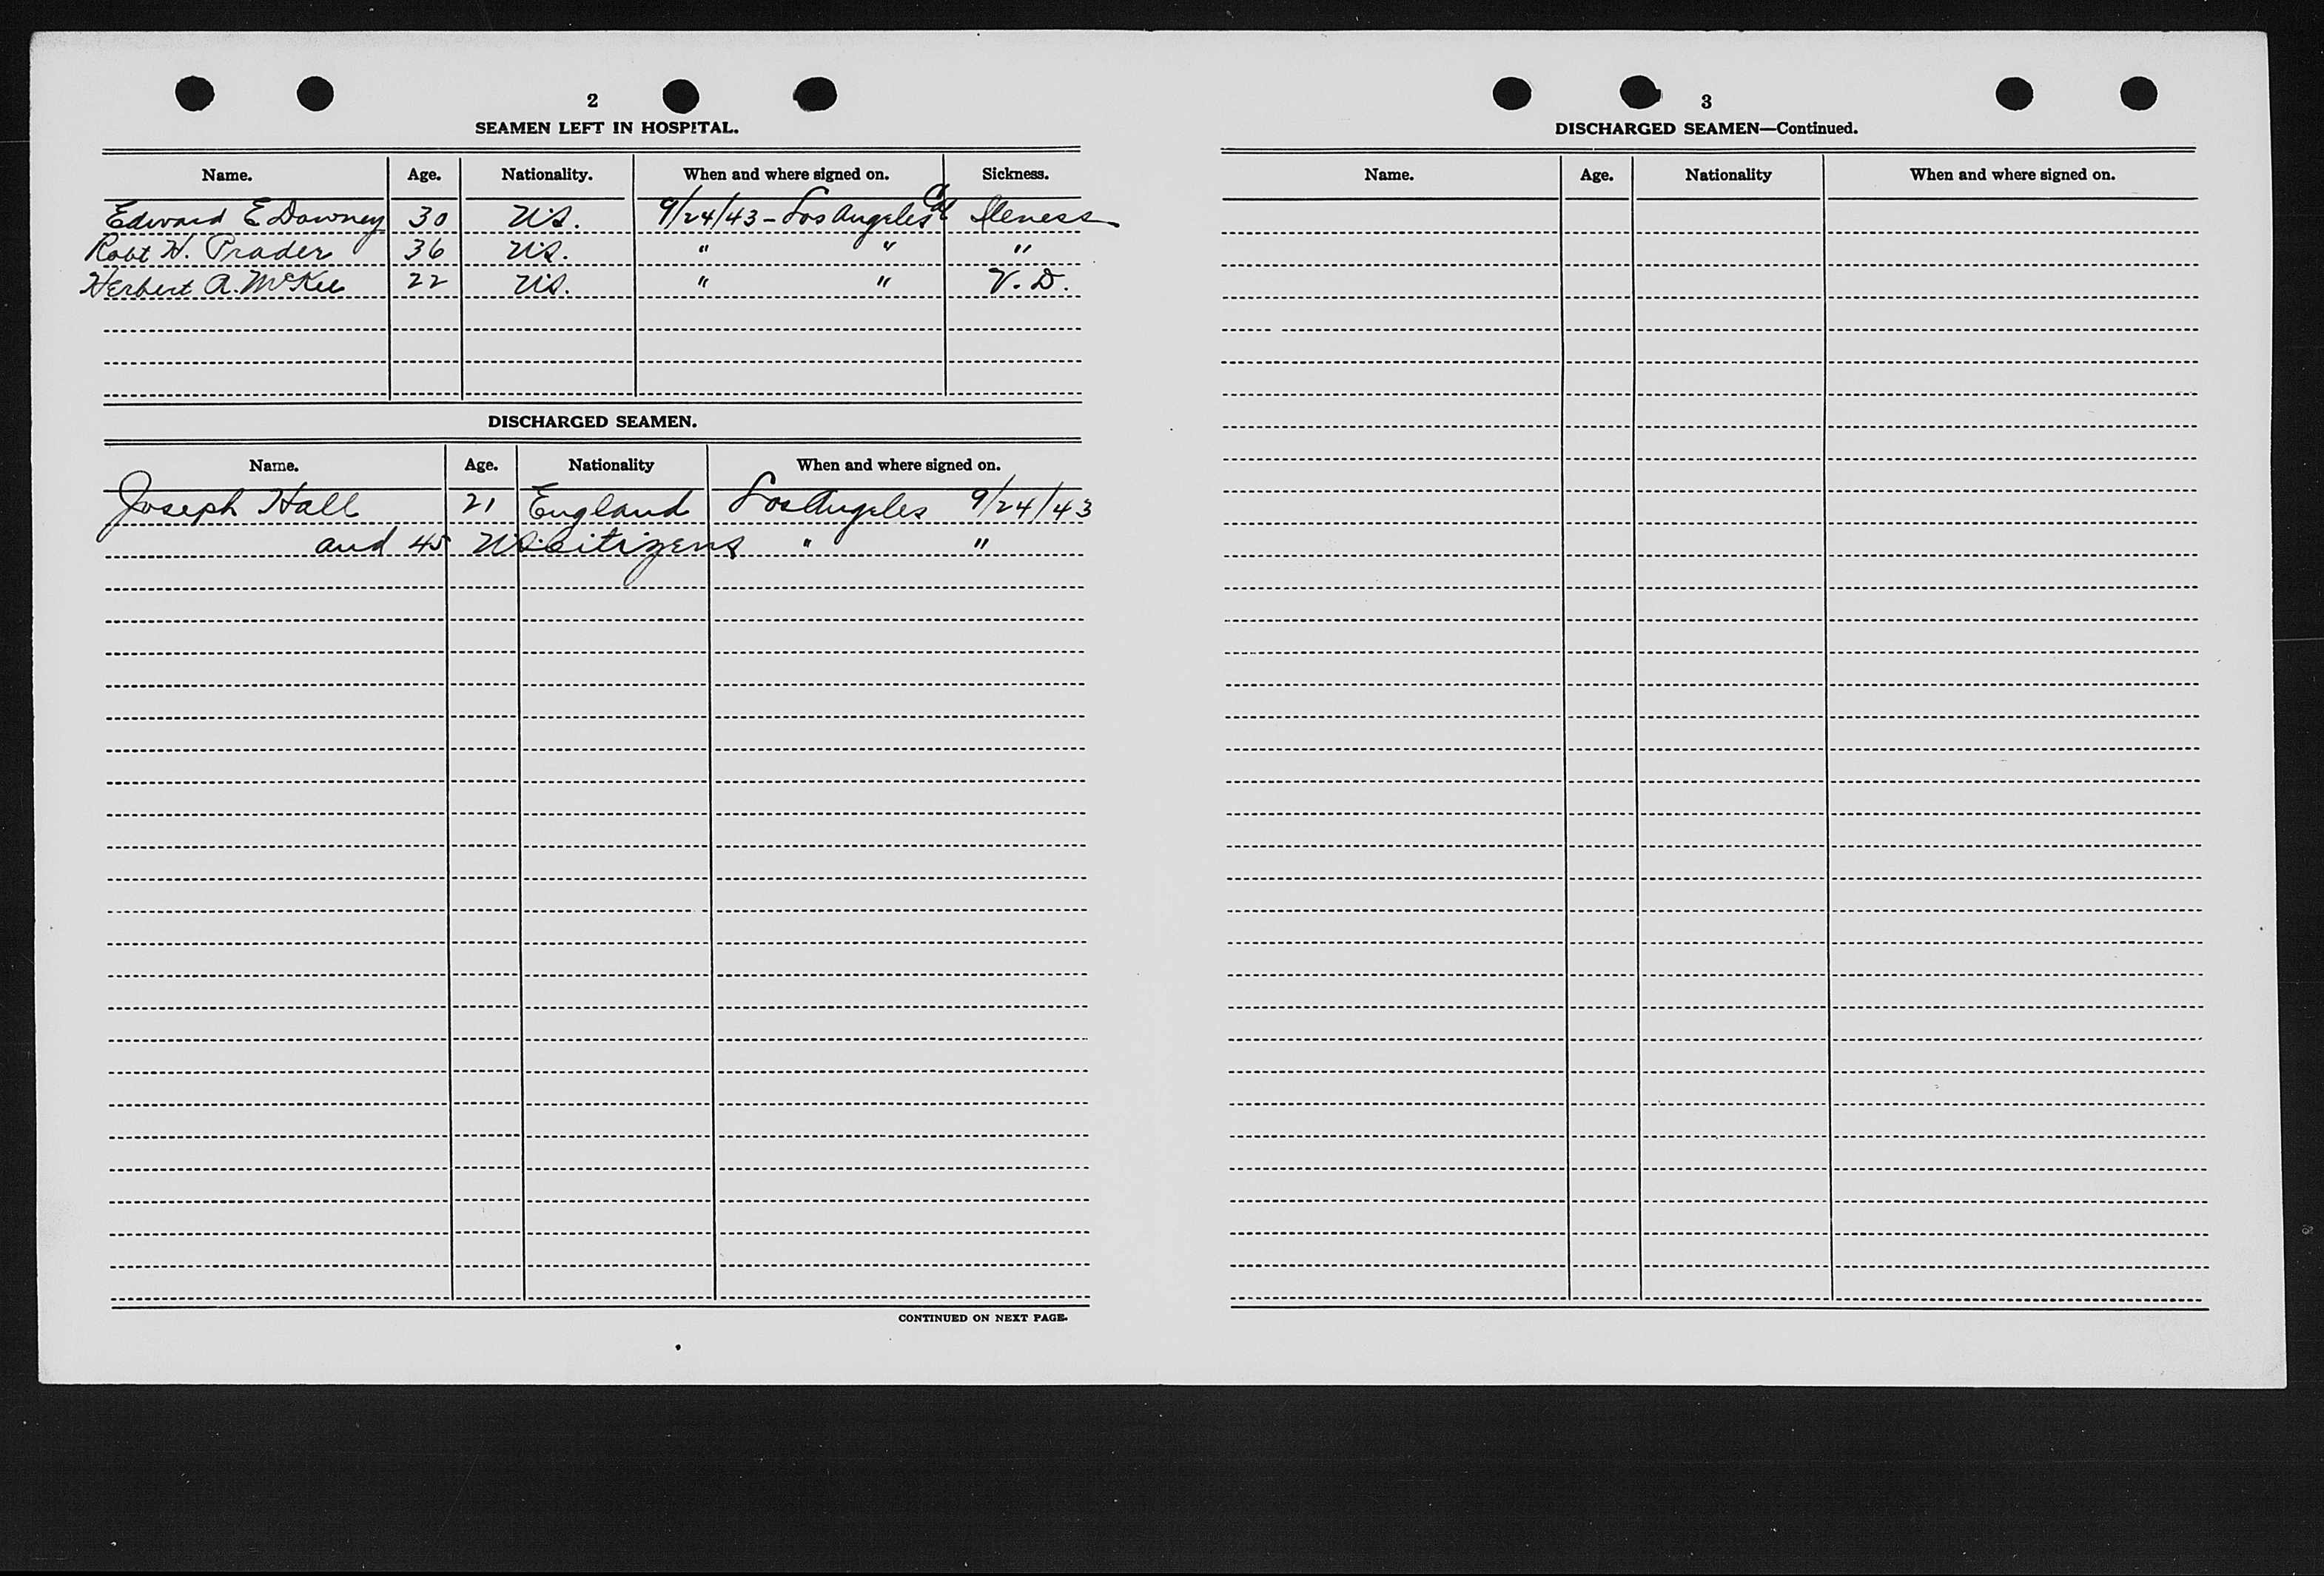 2
SEAMEN LEFT IN HOSPITAL.
Name. Age. Nationality. When and where signed on. Sickness.
Edward E Downey 30 U.S. 9/24/43 - Los Angeles Cal Ileness
Robt H. Prader 36 U.S. " " "
Herbert A. McKee 22 U.S. " " V. D.
DISCHARGED SEAMEN.
Name. Age. Nationality When and where signed on.
Joseph Hall 21 England Los Angeles 9/24/43
and 45 US citizens " "
CONTINUED ON NEXT PAGE.
3
DISCHARGED SEAMEN—Continued.
Name. Age. Nationality When and where signed on.